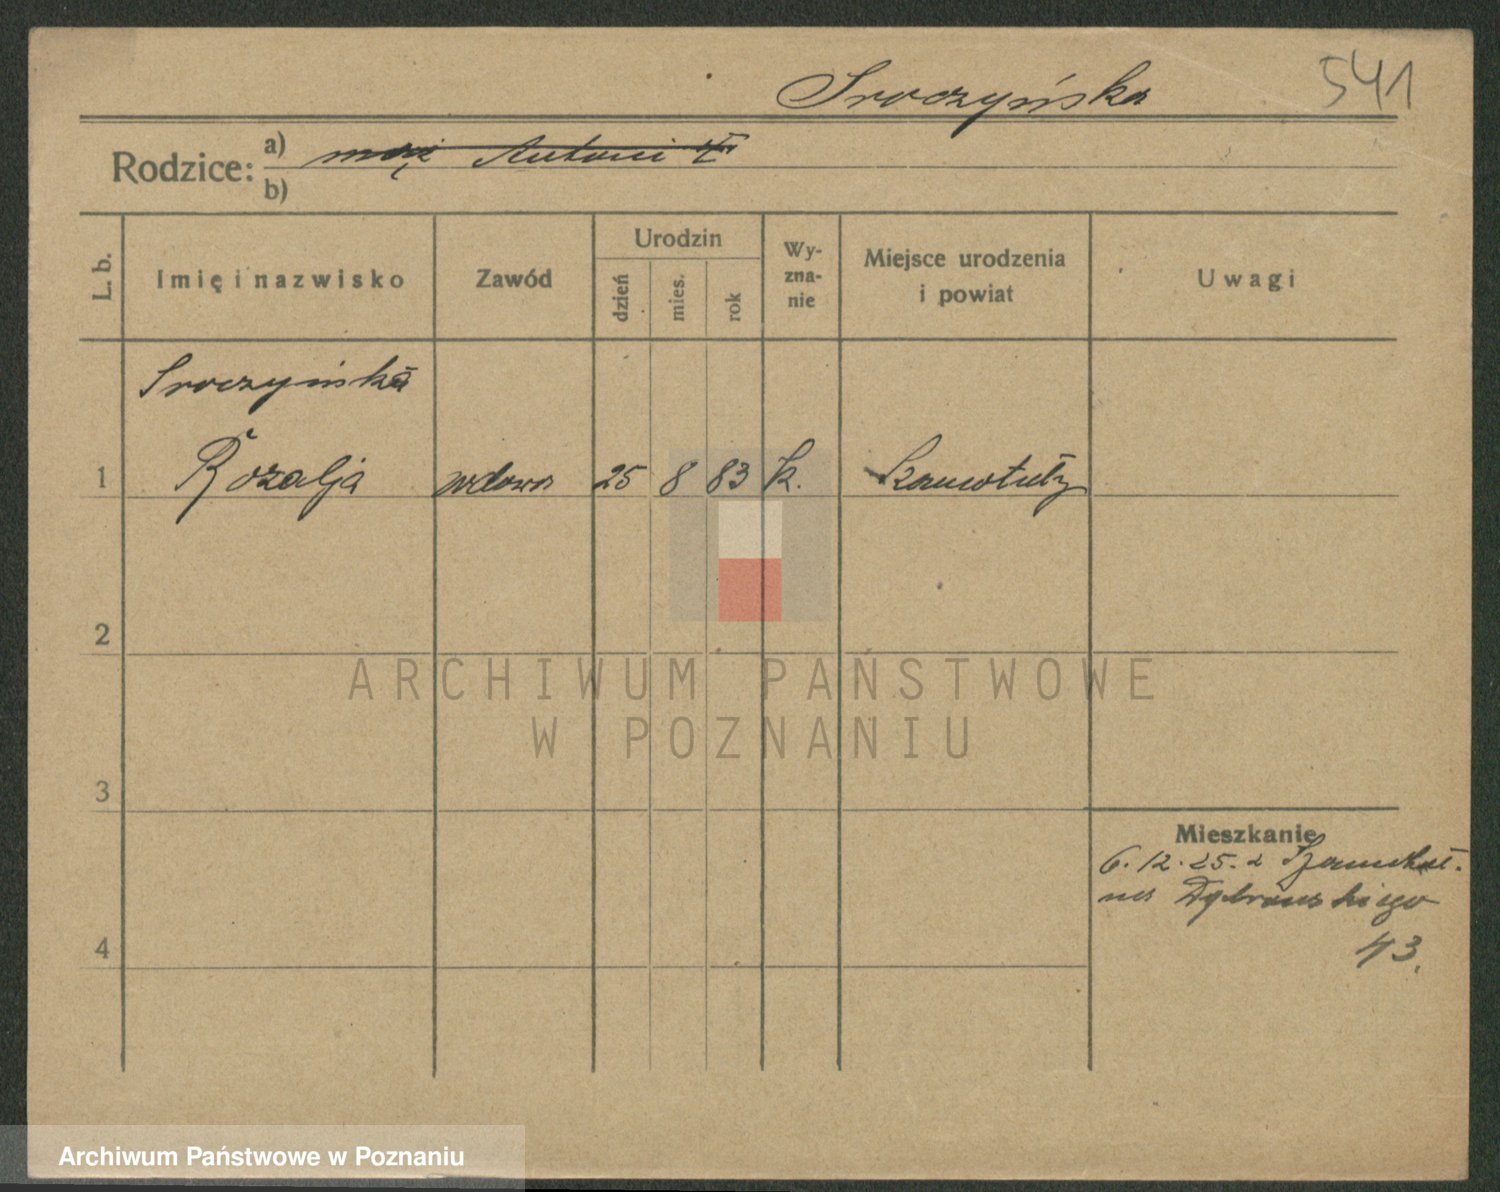 Sroczyńska 541
Rodzice: a) mąż Antoni
b)
L. b. Imię i nazwisko Zawód Urodzin dzień mies. rok Wy-zna-nie Miejsce urodzenia i powiat Uwagi
Sroczyńska
1 Rozalja wdowa 25 8 83 k.
2
3
4
Mieszkanie
6.12.25. z
na Dąbrowskiego
43.
ARCHIWUM PAŃSTWOWE
W POZNANIU
Archiwum Państwowe w Poznaniu